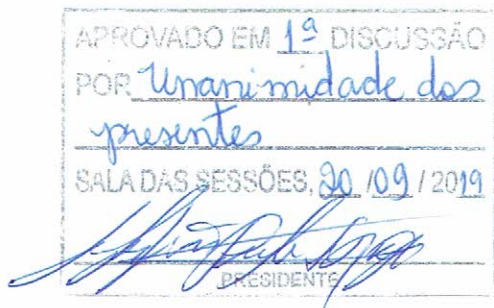 APROVADO EM 1ª DISCUSSÃO
POR Unanimidade dos
presentes
SALA DAS SESSÕES, 20 / 09 / 2019
PRESIDENTE